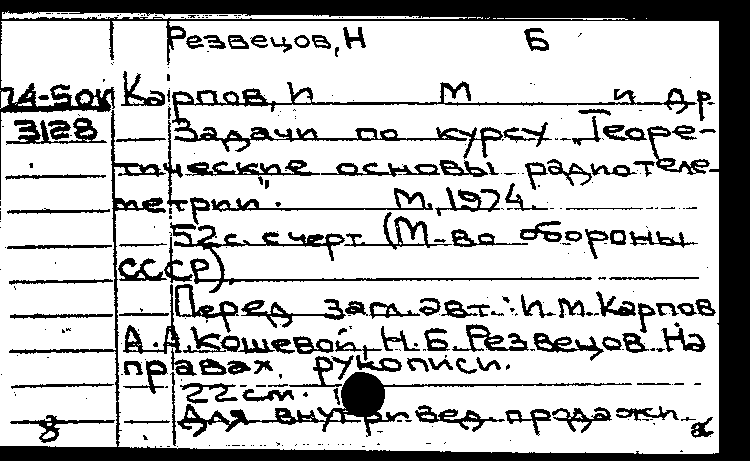 Резвецов, Н Б
74-5ок Карпов, И М и др
3128 Задачи по курсу „Теоре-
тические основы радиотеле-
метрии". М., 1974.
52 с. с черт. (М-во обороны
СССР).
Перед загл. авт.: И.М. Карпов
А.А. Кошевой, Н.Б. Резвецов. На
правах рукописи.
22 см.
Для внутривед. продажи
8